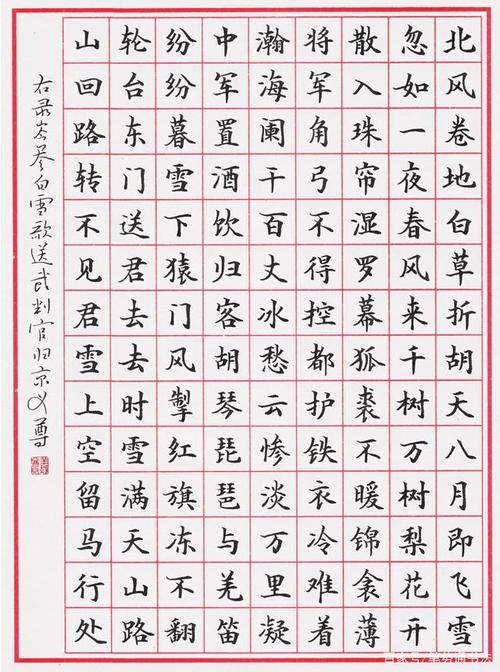 北风卷地白草折胡天八月即飞雪
忽如一夜春风来千树万树梨花开
散入珠帘湿罗幕狐裘不暖锦衾薄
将军角弓不得控都护铁衣冷难着
瀚海阑干百丈冰愁云惨淡万里凝
中军置酒饮归客胡琴琵琶与羌笛
纷纷暮雪下猿门风掣红旗冻不翻
轮台东门送君去去时雪满天山路
山回路转不见君雪上空留马行处
右录岑参白雪歌送武判官归京